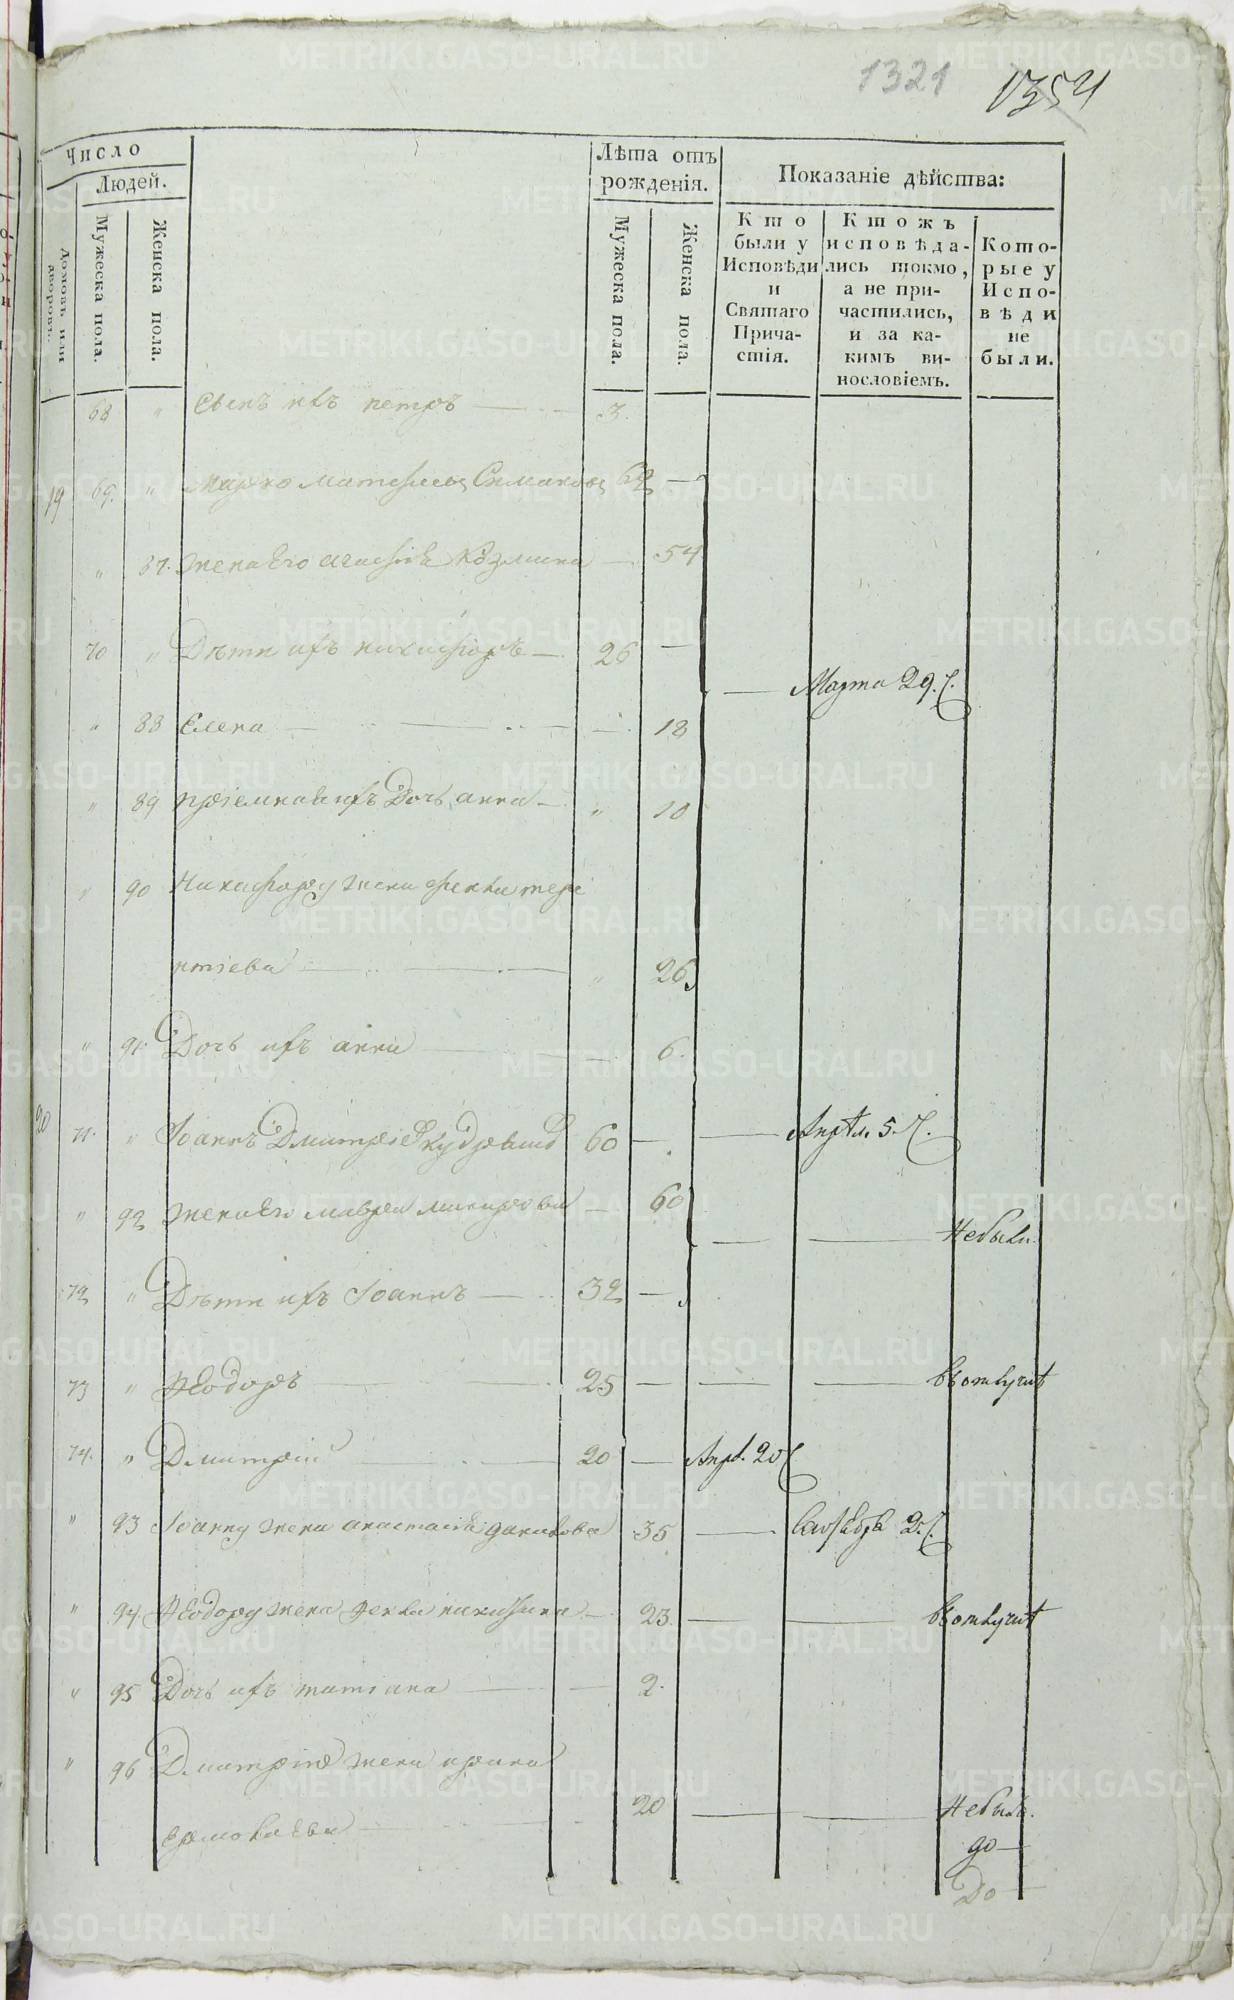 1321 1354
Число
Людей.
Домовъ или дворовъ.
Мужеска пола.
Женска пола.
Лѣта отъ рожденія.
Мужеска пола.
Женска пола.
Показаніе дѣйства:
Кто были у Исповѣди и Святаго Причастія.
Ктожъ исповѣдались токмо, а не причастились, и за какимъ винословіемъ.
Которые у Исповѣди не были.
68 " Сынъ ихъ петръ — 3.
19 69. " марко матѳѣевъ Симаковъ 62 —
" 87. жена Его агафіѧ Козмина — 54
70 " Дѣти ихъ никифоръ — 26 —
Марта 29.
" 88 Елена — 18
" 89 пріемнаѧ ихъ Дочь анна — " 10
" 90 Никифору жена фекла тере
нтіева — " 26
" 91. Дочь ихъ анна — 6.
20 71. " Іоаннъ Дмитріевъ 60 — — Апрѣл. 5.
" 92 жена Его мавра макарова — 60
— — Небыли
72 " Дѣти ихъ Іоаннъ — 32 —
73 " Ѳеодоръ — 25 — — — въ отлучкѣ
74. " Дмитрій — 20 — Апрѣл. 20
" 93 Іоанну жена анастасіѧ данилова 35 — 2.
" 94. Ѳеодору жена Ѳекла никитина — 23. — — въ отлучкѣ
" 95 Дочь ихъ татіана — 2.
" 96 Дмитрію жена ирина
ермолаева — 20 — — Небыла.
до —
До —
METRIKI.GASO-URAL.RU